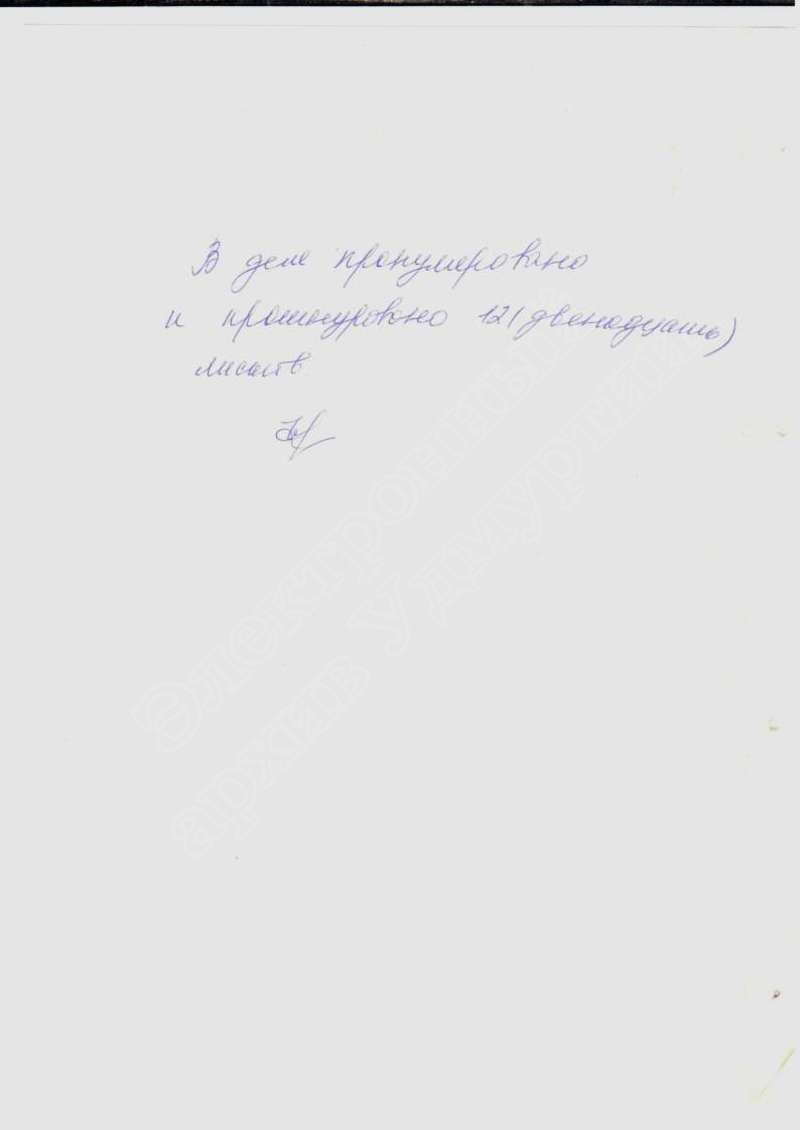 В деле пронумеровано
и прошнуровано 12 (двенадцать)
листов
Электронный
архив Удмуртии